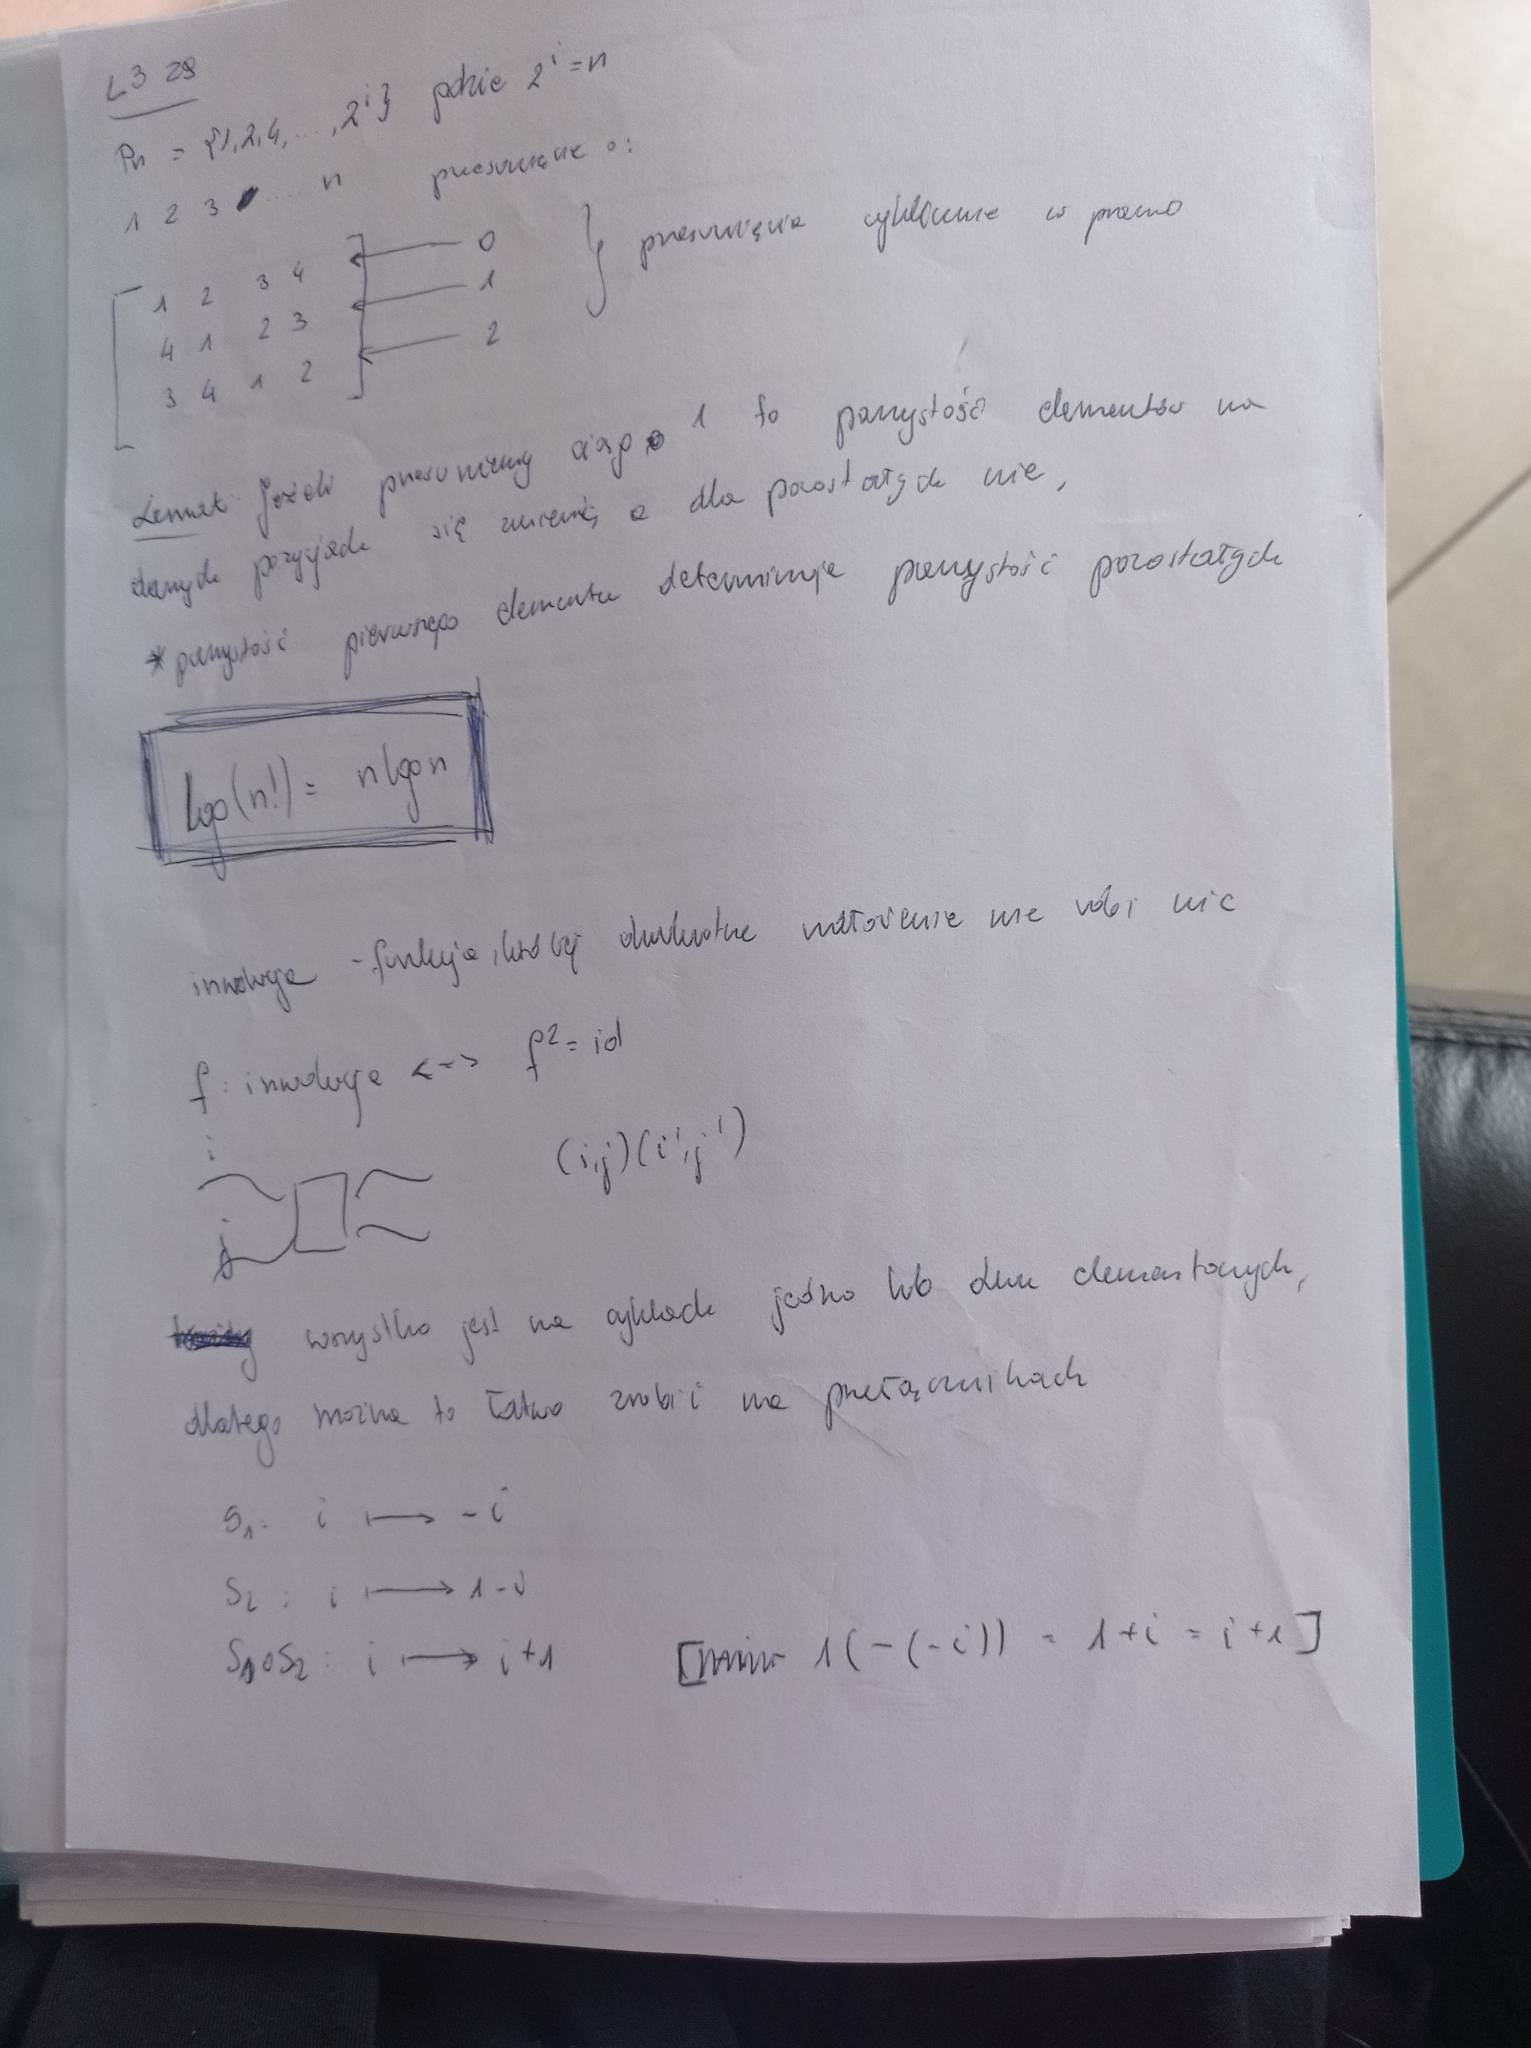 L3 Z8
Pn = {1,2,4,...,2^i} gdzie 2^i = n
1 2 3 ... n przesunięcie o:
1 2 3 4 ← 0 } przesunięcia cykliczne w prawo
4 1 2 3 ← 1
3 4 1 2 ← 2
Lemat: Jeżeli przesuniemy ciąg o 1 to parzystość elementów na
danych pozycjach się zmieni, a dla pozostałych nie,
* parzystość pierwszego elementu determinuje parzystość pozostałych
log(n!) = n log n
inwolucja - funkcja, której dwukrotne nałożenie nie robi nic
f: inwolucja <=> f² = id
i
(i,j)(i',j')
j
wszystko jest na cyklach jedno lub dwu elementowych,
dlatego można to łatwo zrobić na przełącznikach
S₁: i ↦ -i
S₂: i ↦ 1-i
S₁∘S₂: i ↦ i+1 [ 1(-(-i)) = 1+i = i+1]